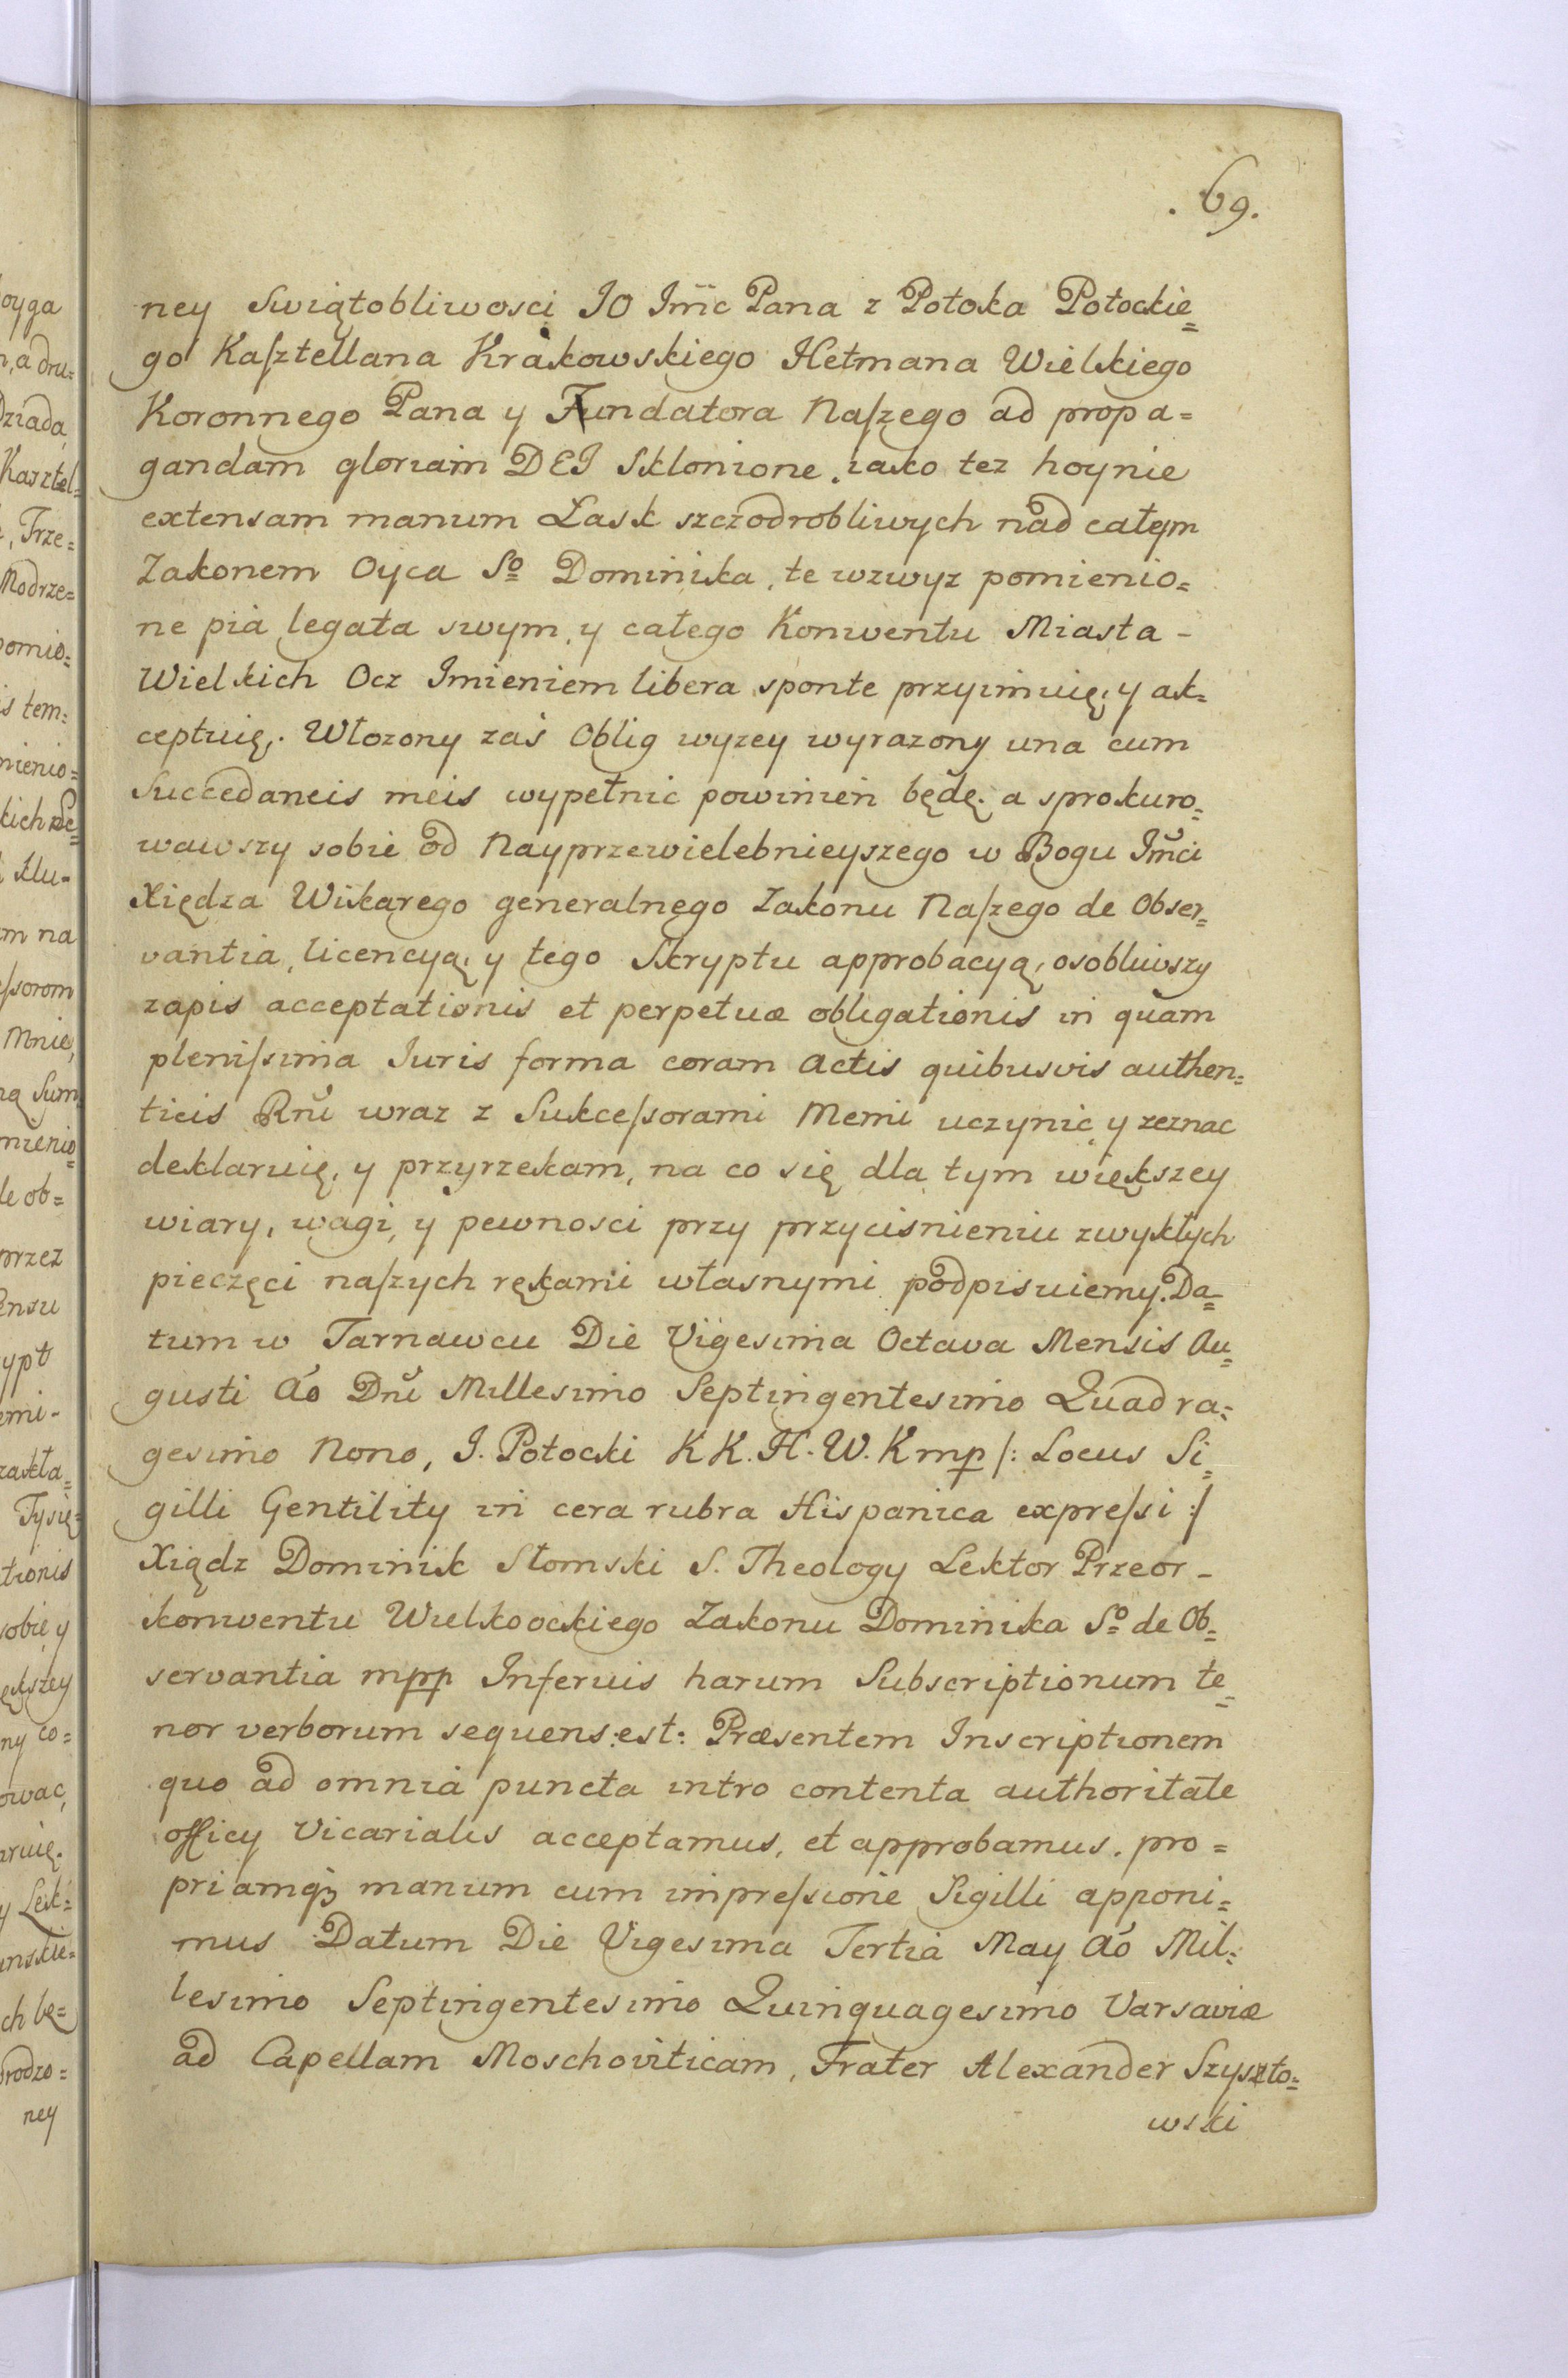 . 69.
ney Swiątobliwosci JO Jmc Pana z Potoka Potockie=
go Kaſztellana Krakowskiego Hetmana Wielkiego
Koronnego Pana y Fundatora Naſzego ad propa=
gandam gloriam DEI Sklonione, iako tez hoynie
extensam manum Łask szczodrobliwych nad całym
Zakonem Oyca So Dominika, te wzwyz pomienio=
ne pia legata swym, y całego Konwentu Miasta -
Wielkich Ocz Imieniem libera sponte przyimuię, y ak=
ceptuię. Włozony zaś Oblig wyzey wyrazony una cum
Succedaneis meis wypełnic powinien będę. a sprokuro=
wawszy sobie od Nayprzewielebnieyszego w Bogu Jmci
Xiędza Wikarego generalnego Zakonu Naſzego de Obser=
vantia, licencyą, y tego Skryptu approbacyą, osobliwszy
zapis acceptationis et perpetuæ obligationis in quam
pleniſsima Iuris forma coram Actis quibusvis authen=
ticis Rni wraz z Sukceſsorami Memi uczynic, y zeznac
deklaruię, y przyrzekam, na co się dla tym większey
wiary, wagi, y pewnosci przy przycisnieniu zwykłych
pieczęci naſzych rękami własnymi podpisuiemy. Da=
tum w Tarnawcu Die Vigesima Octava Mensis Au=
gusti Ao Dni Millesimo Septingentesimo Quadra=
gesimo Nono, J. Potocki KK. H. W. K mp /: Locus Si=
gilli Gentility in cera rubra Hispanica expreſsi :/
Xiądz Dominik Słomski S. Theology Lektor Przeor -
konwentu Wielkoockiego Zakonu Dominika So de Ob=
servantia mpp Inferius harum Subscriptionum te=
nor verborum sequens est: Præsentem Inscriptionem
quo ad omnia puncta intro contenta authoritate
officy Vicarialis acceptamus, et approbamus, pro=
priamqꝫ manum cum impreſsione Sigilli apponi=
mus Datum Die Vigesima Tertia May Ao Mil=
lesimo Septingentesimo Quinquagesimo Varsaviæ
ad Capellam Moschoviticam, Frater Alexander Szyszto=
wski
oyga
n, a dru=
Dziada
Kasztel=
, Trze=
Modrze=
pomio=
is tem=
mienio=
kich
klu-
m na
ſsorom
Mnie,
ną Sum
mienio=
le ob=
przez
ensu
ypt
emi-
zakła=
Tysię=
tionis
sobie y
ększey
ny co=
owac,
aruię.
y Lek=
inskie=
ch bę=
rodzo=
ney